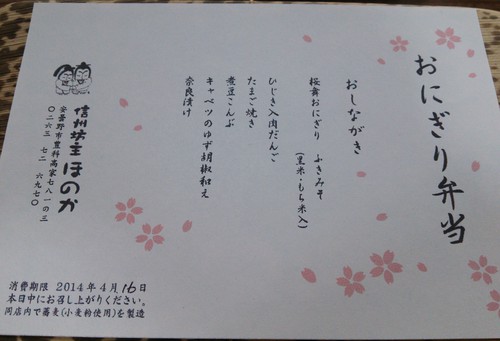 おにぎり弁当
おしながき
桜舞おにぎり ふきみそ
(黒米・もち米入)
ひじき入肉だんご
たまご焼き
煮豆こんぶ
キャベツのゆず胡椒和え
奈良漬け
信州坊主ほのか
安曇野市豊科高家七八一の三
〇二六三 七二 六九七〇
消費期限 2014年4月16日
本日中にお召し上がりください。
同店内で蕎麦(小麦粉使用)を製造